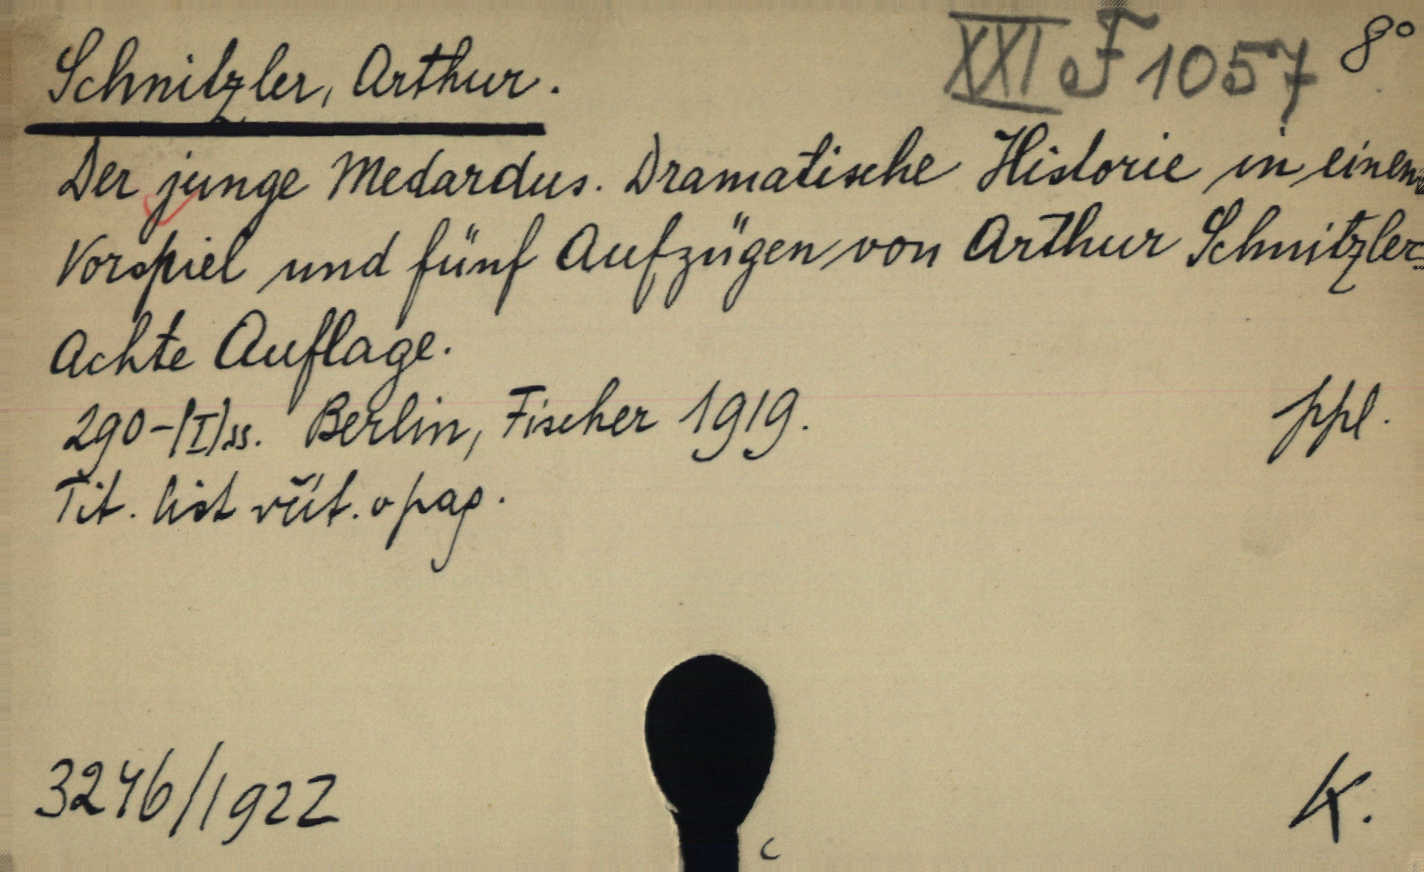 Schnitzler, Arthur.
XXI F 1057
8°
Der junge Medardus. Dramatische Historie in einem
Vorspiel und fünf Aufzügen von Arthur Schnitzler.
Achte Auflage.
290-[I] ss. Berlin, Fischer 1919.
ppl.
Tit. list výt. o pag.
3246/1922
K.